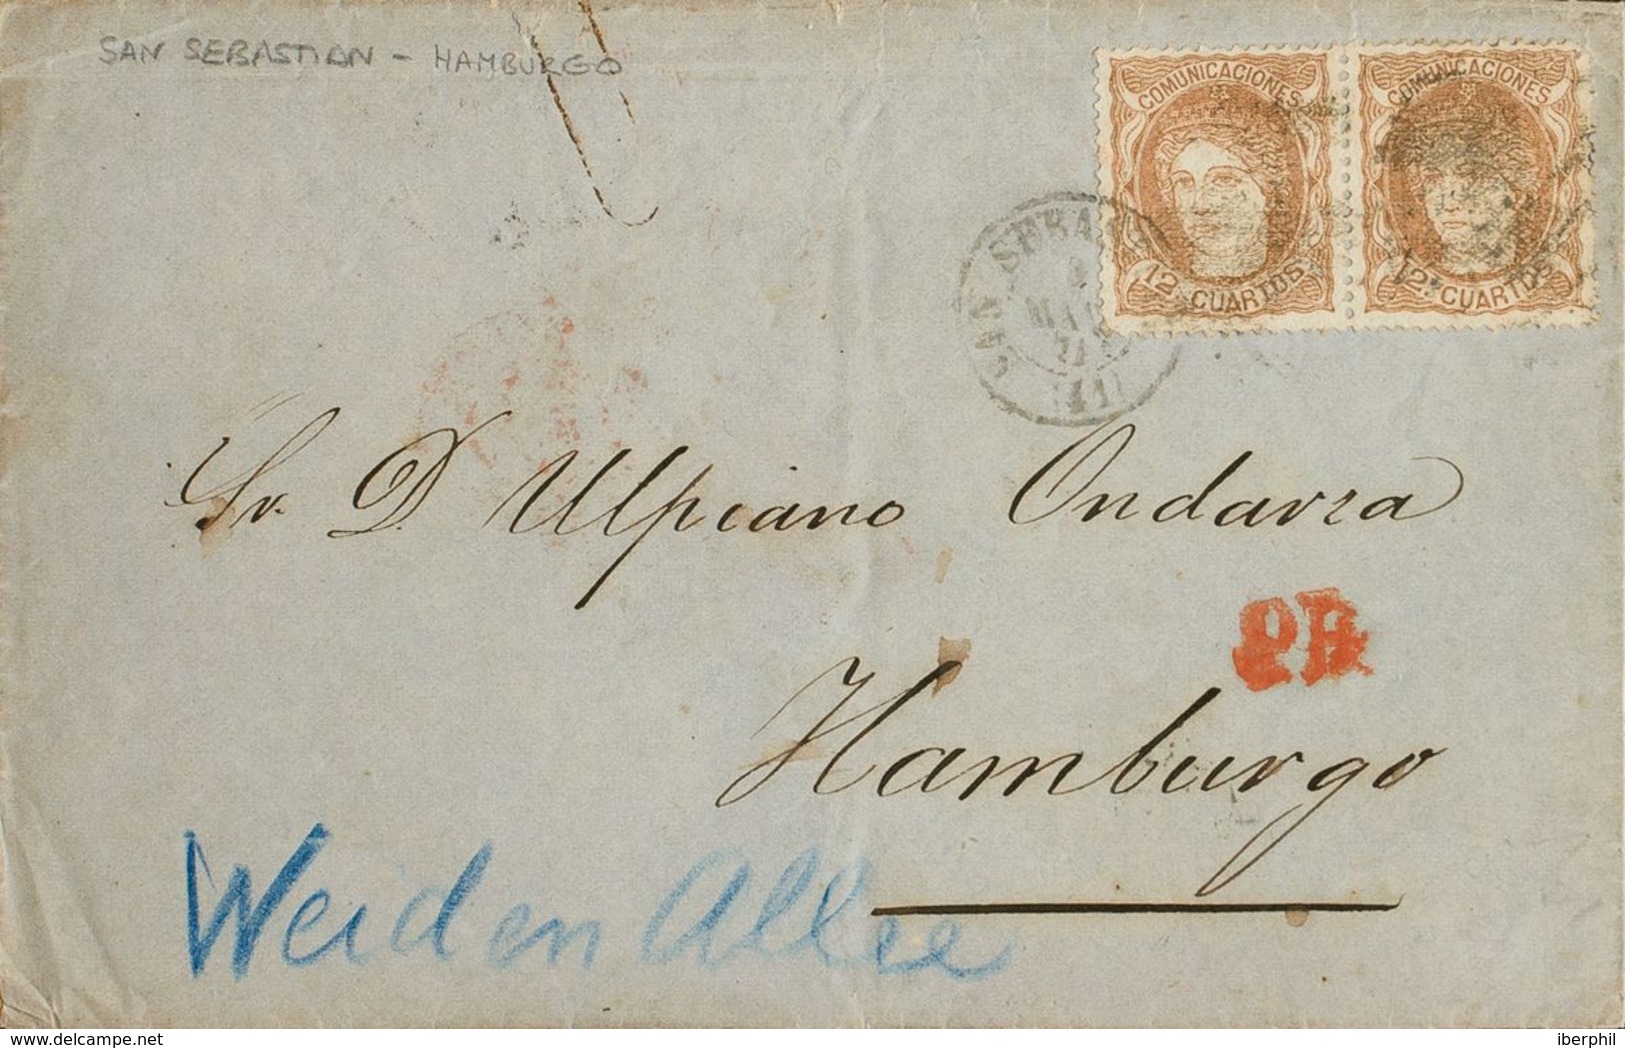 SAN SEBASTIAN - HAMBURGO
COMUNICACIONES
COMUNICACIONES
12 CUARTOS
12 CUARTOS
SAN SEBA
(41)
Sr. D. Ulpiano Ondarza
PD
Hamburgo
Weiden Allee
delcampe.net
iberphil